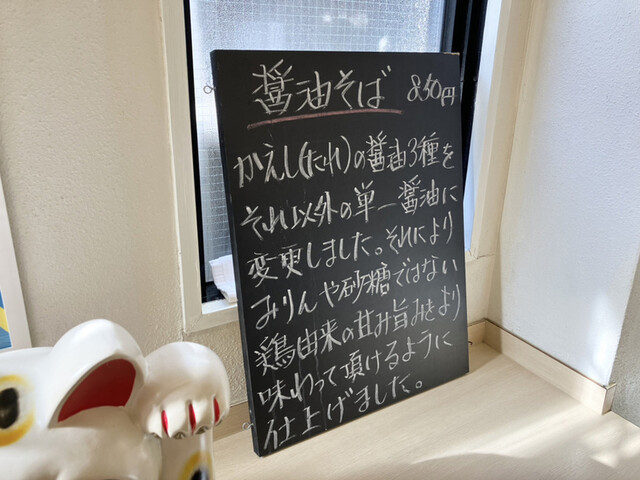 醤油そば 850円
かえし(たれ)の醤油3種を
それ以外の単一醤油に
変更しました。それにより
みりんや砂糖ではない
鶏由来の甘み旨みをより
味わって頂けるように
仕上げました。